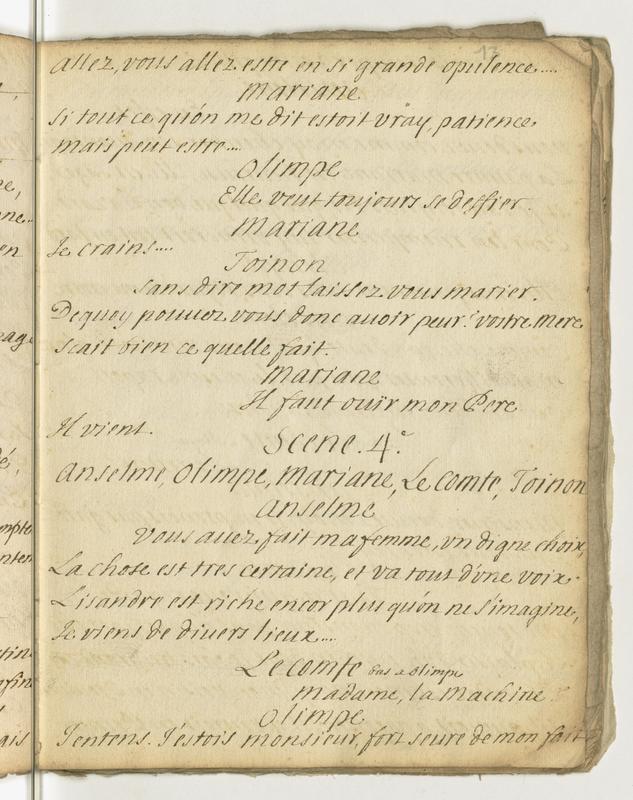 13
Allez, vous allez estre en si grande opulence....
Mariane
Si tout ce qu'on me dit estoit vray, patience
Mais peut estre....
Olimpe
Elle veut toujours se deffier.
Mariane
Je crains....
Toinon
Sans dire mot laissez vous marier.
Dequoy pouvez vous donc avoir peur? vostre Mere
Scait bien ce quelle fait.
Mariane
Il faut ouïr mon Pere
Il vient.
Scene. 4.e
Anselme, Olimpe, Mariane, Le Comte, Toinon
Anselme
Vous avez fait ma femme, un digne choix,
La chose est tres certaine, et va tout d'vne voix.
Lisandre est riche encor plus qu'on ne s'imagine,
Je viens de divers lieux....
Le comte bas a Olimpe
Madame, la Machine
Olimpe
J'entens. J'estois monsieur, fort seure de mon fait